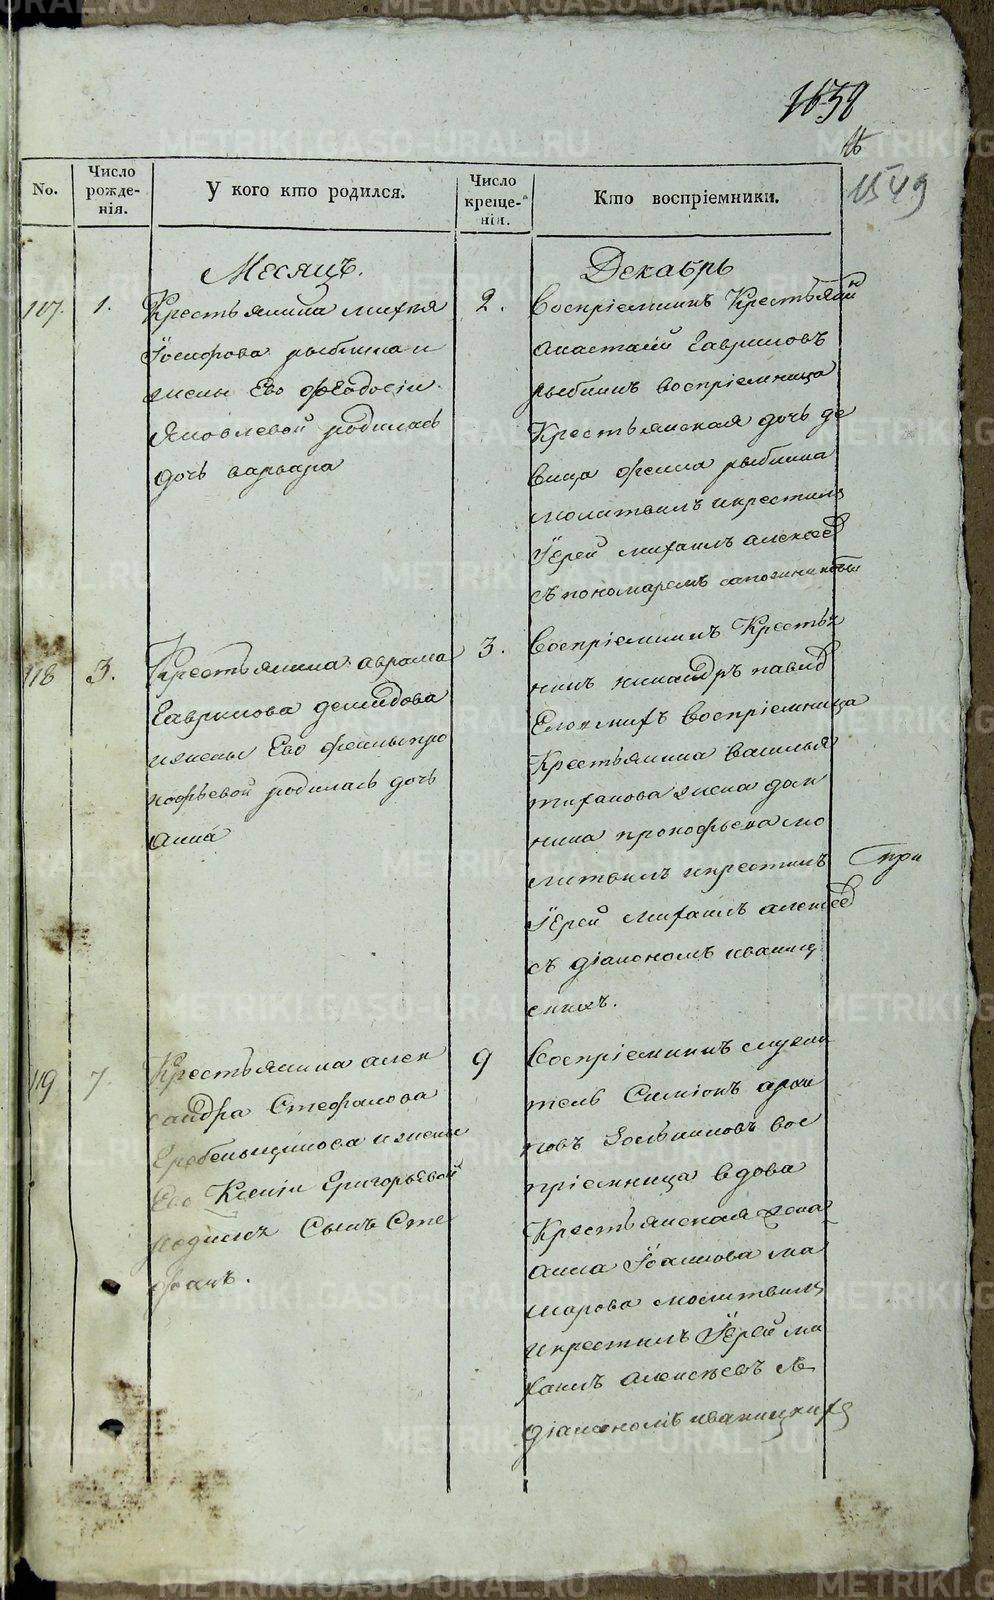 1638
1549
No.
Число рожденія.
У кого кто родился.
Число крещенія.
Кто воспріемники.
Месяцъ. Декабрь
117. 1.
Крестьянина
Іосифова рыбина и
жены Ево феѡдосіи
Яковлевой родилась
дочь варвара
2.
Воспріемникъ Крестьянин
анастасій Гавриловъ
рыбинъ воспріемница
Крестьянская дочь де
вица рыбина
молитвилъ икрестилъ
Іерей михаилъ алексеев
съ пономаремъ
118 3.
Крестьянина аврама
Гаврилова демидова
ижены Ево про
кофьевой родилась дочь
анна
3.
Воспріемникъ Крестья
нинъ никандръ
воспріемница
Крестьянина василья
жена дом
нина прокофьева мо
литвилъ икрестилъ
Іерей михаилъ алексеев
съ діакономъ
три
119 7.
Крестьянина алек
сандра Стефанова
Гребенщикова ижены
Ево Ксеніи Григорьевой
родился Сынъ Сте
фанъ.
9
Воспріемникъ служи
тель Симіонъ
вос
пріемница вдова
Крестьянская жена
анна Іоаннова ма
карова молитвилъ
икрестилъ Іерей ми
хаилъ алексѣевъ съ
діакономъ
METRIKI.GASO-URAL.RU